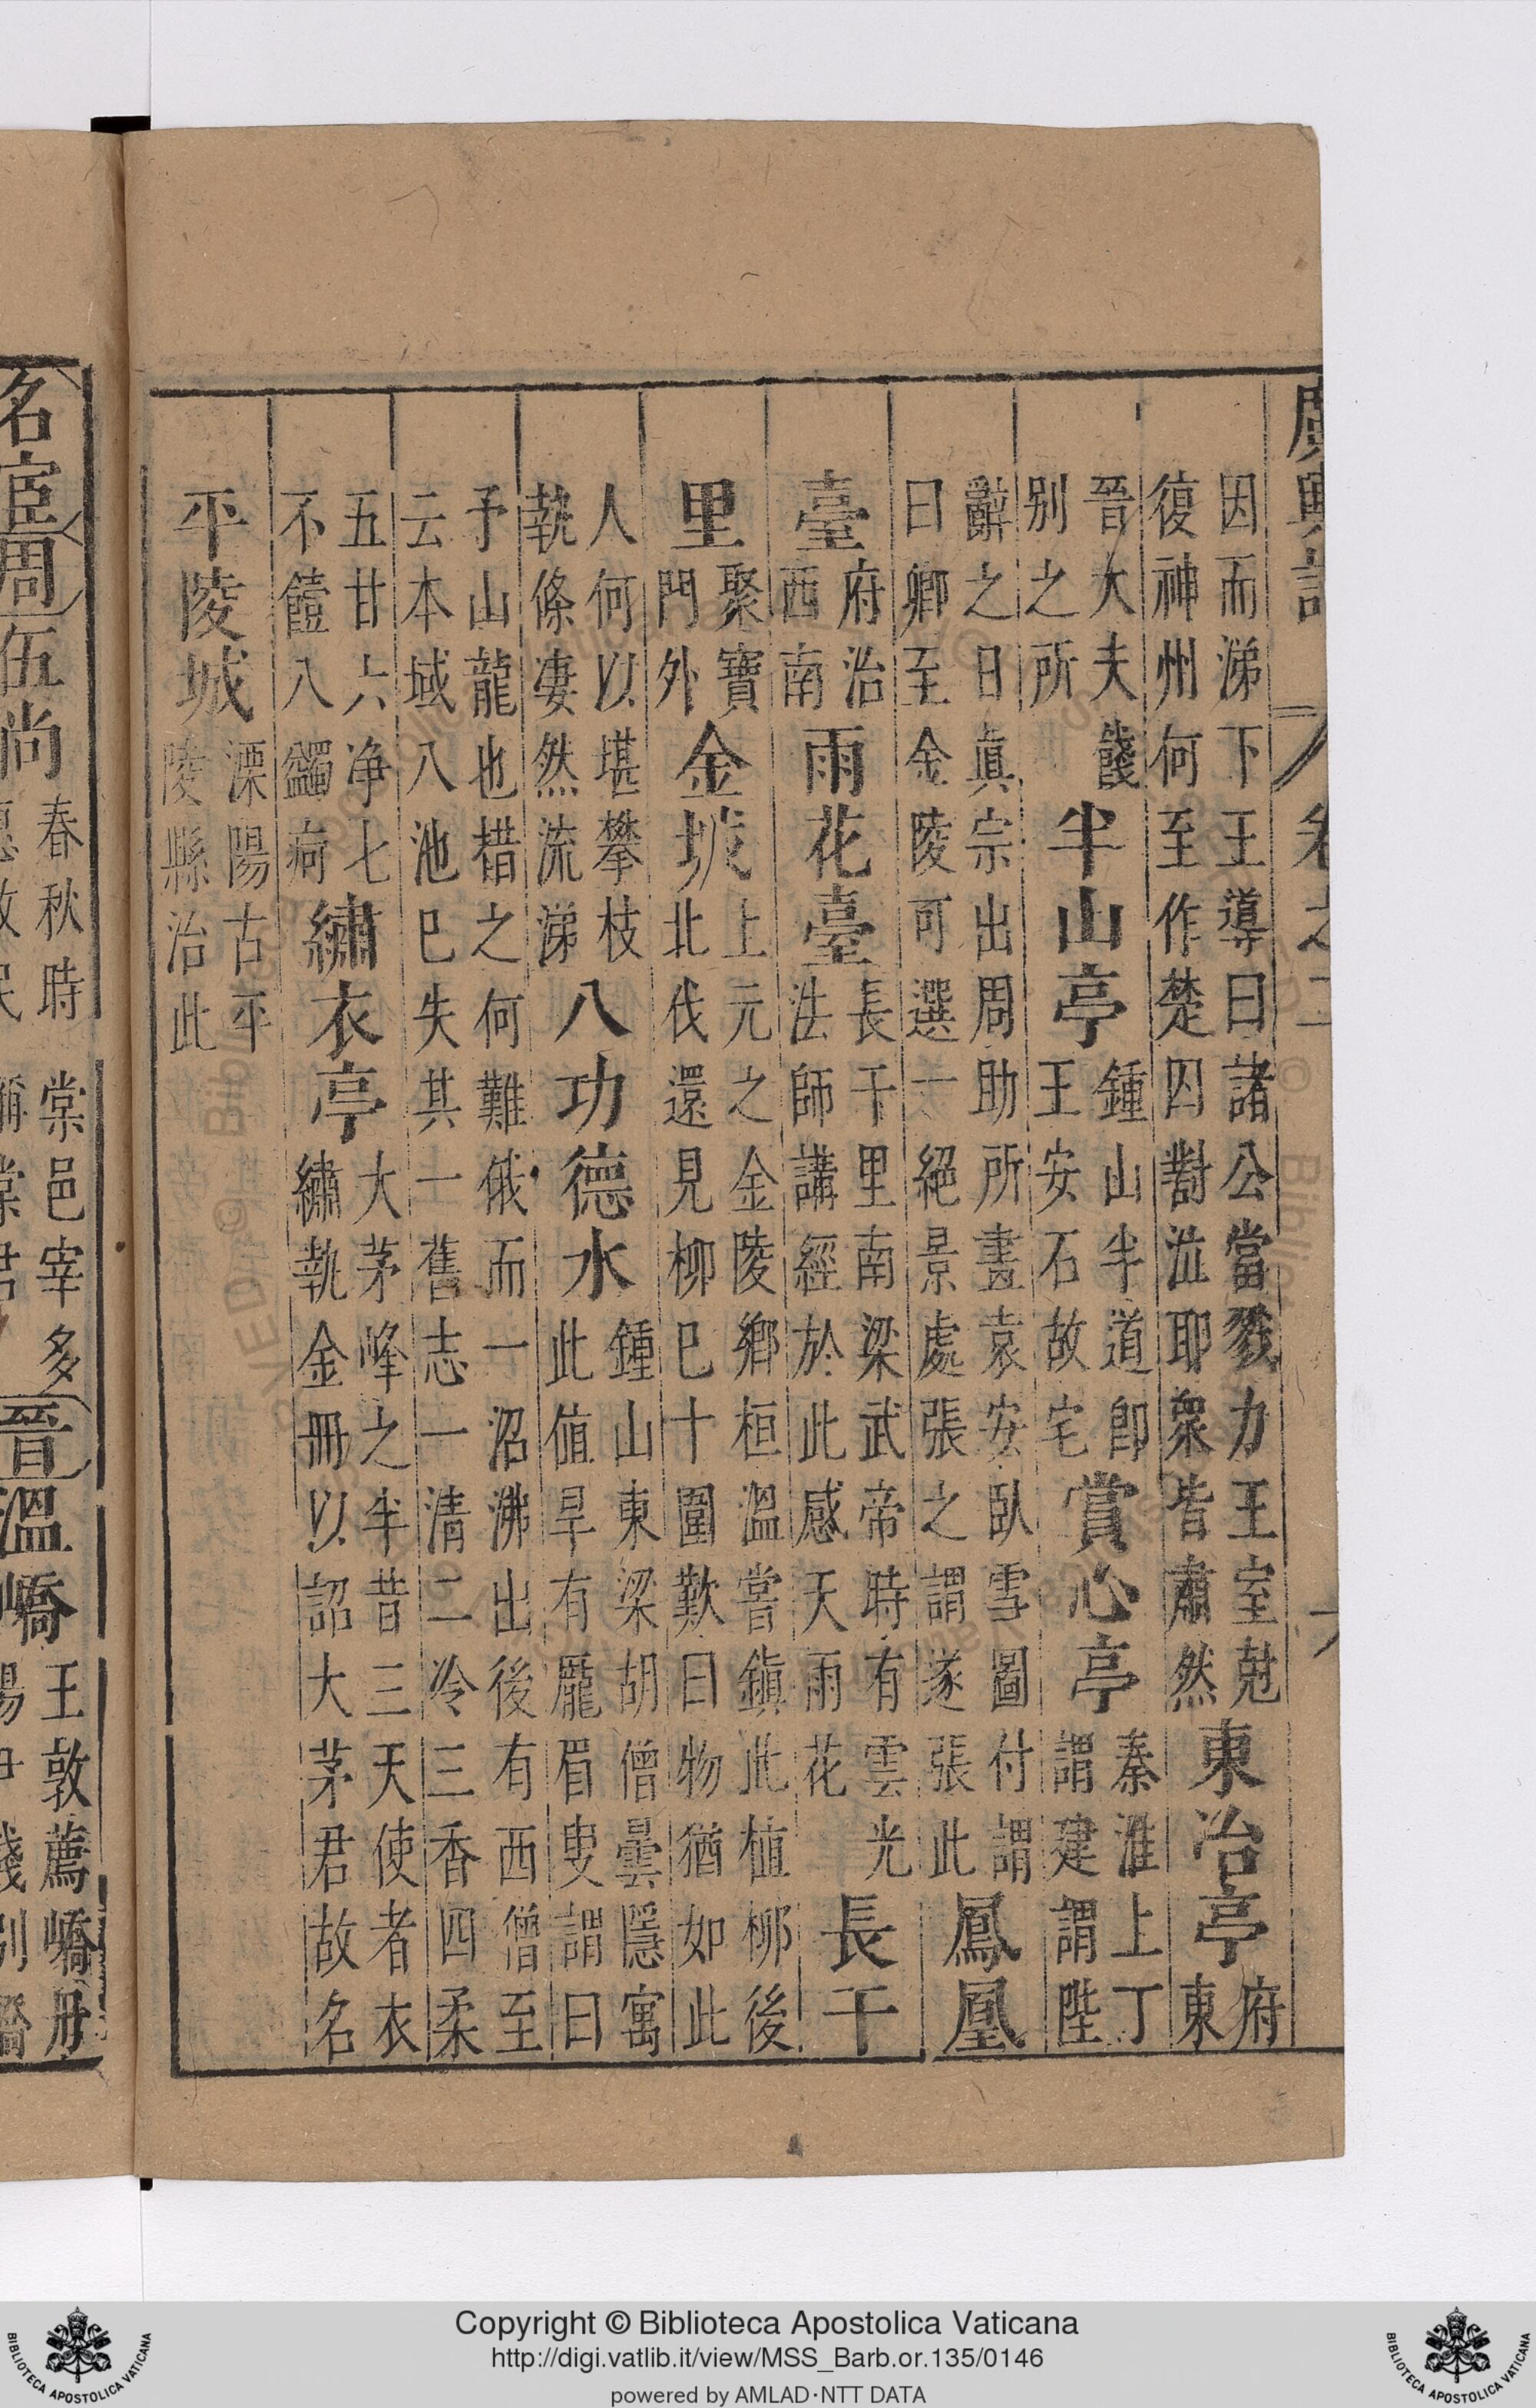 廣輿記 卷之二
因而涕下王導曰諸公當戮力王室尅
復神州何至作楚囚對泣耶衆皆肅然東冶亭府
東
晉大夫餞
别之所半山亭鍾山半道即
王安石故宅賞心亭秦淮上丁
謂建謂陛
辭之日真宗出周昉所畫袁安臥雪圖付謂
曰卿至金陵可選一絕景處張之謂遂張此鳳凰
臺府治
西南雨花臺長干里南梁武帝時有雲光
法師講經於此感天雨花長干
里聚寶
門外金坡上元之金陵鄉桓溫嘗鎮此植柳後
北伐還見柳已十圍歎曰物猶如此
人何以堪攀枝
執條凄然流涕八功德水鍾山東梁胡僧曇隱寓
此值旱有龎眉叟謂曰
予山龍也措之何難俄而一沼沸出後有西僧至
云本域八池已失其一舊志一清二冷三香四柔
五甘六净七
不饐八蠲痾繡衣亭大茅峰之半昔三天使者衣
繡執金冊以詔大茅君故名
平陵城溧陽古平
陵縣治此
名宦周伍尚春秋時棠邑宰多
晉溫嶠王敦薦嶠丹
Copyright © Biblioteca Apostolica Vaticana
http://digi.vatlib.it/view/MSS_Barb.or.135/0146
powered by AMLAD·NTT DATA
BIBLIOTECA APOSTOLICA VATICANA
BIBLIOTECA APOSTOLICA VATICANA